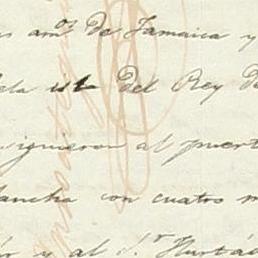 am.os de Jamaica y
isl Del Rey
siguieron al puert
lancha con cuatro m
y al S.r Hurta